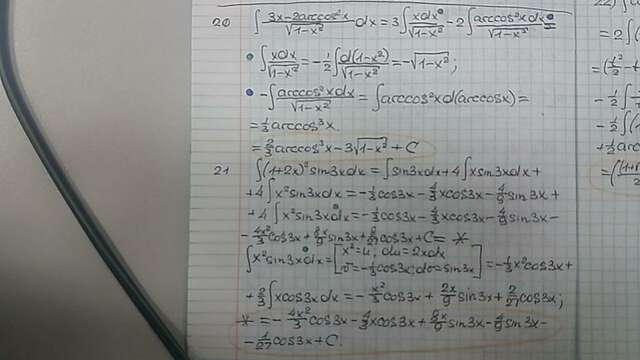 20 ∫ (3x-2arccos²x)/√(1-x²) dx = 3∫ xdx/√(1-x²) - 2∫ arccos²xdx/√(1-x²) =
∫ xdx/√(1-x²) = -1/2 ∫ d(1-x²)/√(1-x²) = -√(1-x²);
-∫ arccos²xdx/√(1-x²) = ∫arccos²xd(arccosx) =
= 1/3 arccos³x.
= 2/3 arccos³x - 3√(1-x²) + C
21 ∫(1+2x)²sin3xdx = ∫sin3xdx + 4∫xsin3xdx +
+ 4∫x²sin3xdx = -1/3 cos3x - 4/3 xcos3x - 4/9 sin3x +
+ 4∫x²sin3xdx = -1/3 cos3x - 4/3 xcos3x - 4/9 sin3x -
- 4x²/3 cos3x + 8x/9 sin3x + 8/27 cos3x + C = *
∫x²sin3xdx = [x²=u, du=2xdx v=-1/3 cos3x, dv=sin3x] = -1/3 x²cos3x +
+ 2/3 ∫xcos3xdx = -x²/3 cos3x + 2x/9 sin3x + 2/27 cos3x;
* = -4x²/3 cos3x - 4/3 xcos3x + 8x/9 sin3x - 4/9 sin3x -
- 4/27 cos3x + C.